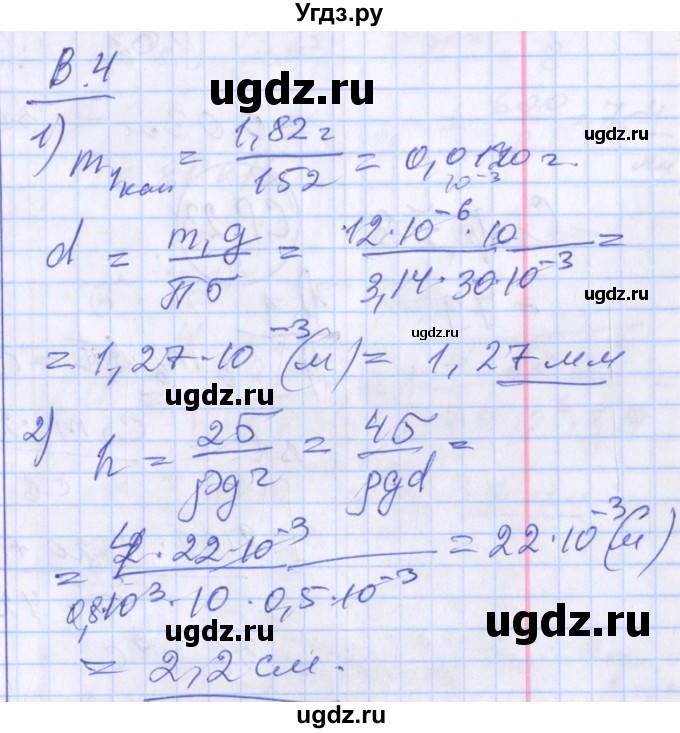 Угдз.ру
В.4
ugdz.ru
ugdz.ru
1) m₁кап = 1,82 г / 152 = 0,0120 г.
10⁻³
d = m₁g / πσ = 12·10⁻⁶·10 / 3,14·30·10⁻³ =
ugdz.ru
ugdz.ru
= 1,27·10⁻³ (м) = 1,27 мм
ugdz.ru
2) h = 2σ / ρgr = 4σ / ρgd =
ugdz.ru
= 4·22·10⁻³ / 0,8·10³·10·0,5·10⁻³ = 22·10⁻³ (м)
ugdz.ru
ugdz.ru
= 2,2 см.
ugdz.ru